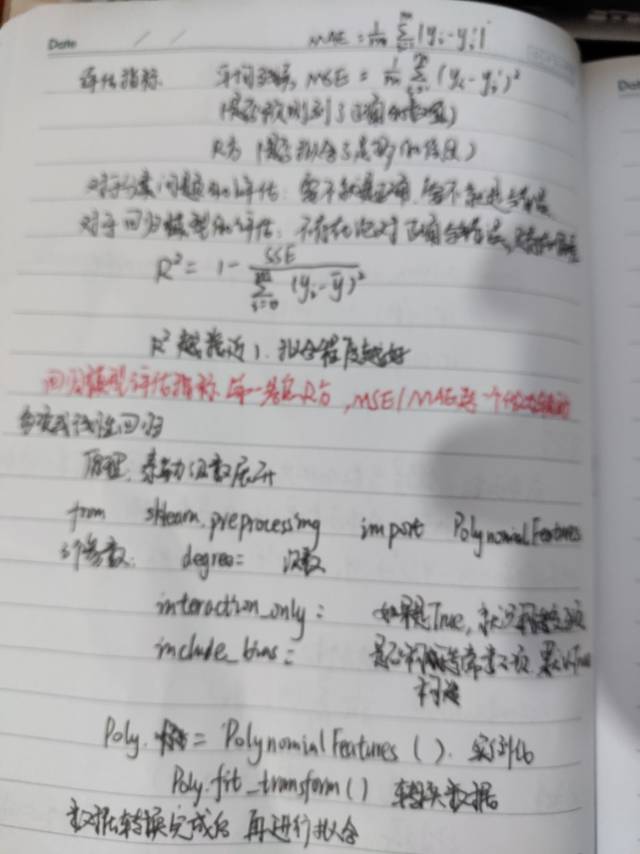 Date / /
MAE = 1/m Σ |yi - yi'|
评估指标 平均误差, MSE = 1/m Σ (yi - yi')²
(是否预测到了正确的数值)
R方 (是否拟合了足够的信息)
对于分类问题的评估: 要不就是正确, 要不就是错误
对于回归模型的评估: 不存在绝对正确
R² = 1 - SSE / Σ(i=0, m) (yi - ȳ)²
R²越接近1, 拟合程度越好
回归模型评估指标 R方, MSE/MAE是一个
多项式线性回归
原理: 泰勒级数展开
from sklearn.preprocessing import PolynomialFeatures
3个参数: degree= 次数
interaction_only: 如果是True, 就没有
include_bias= 是否 True
Poly = PolynomialFeatures(). 实例化
Poly.fit_transform() 转换数据
数据转换完成后 再进行拟合